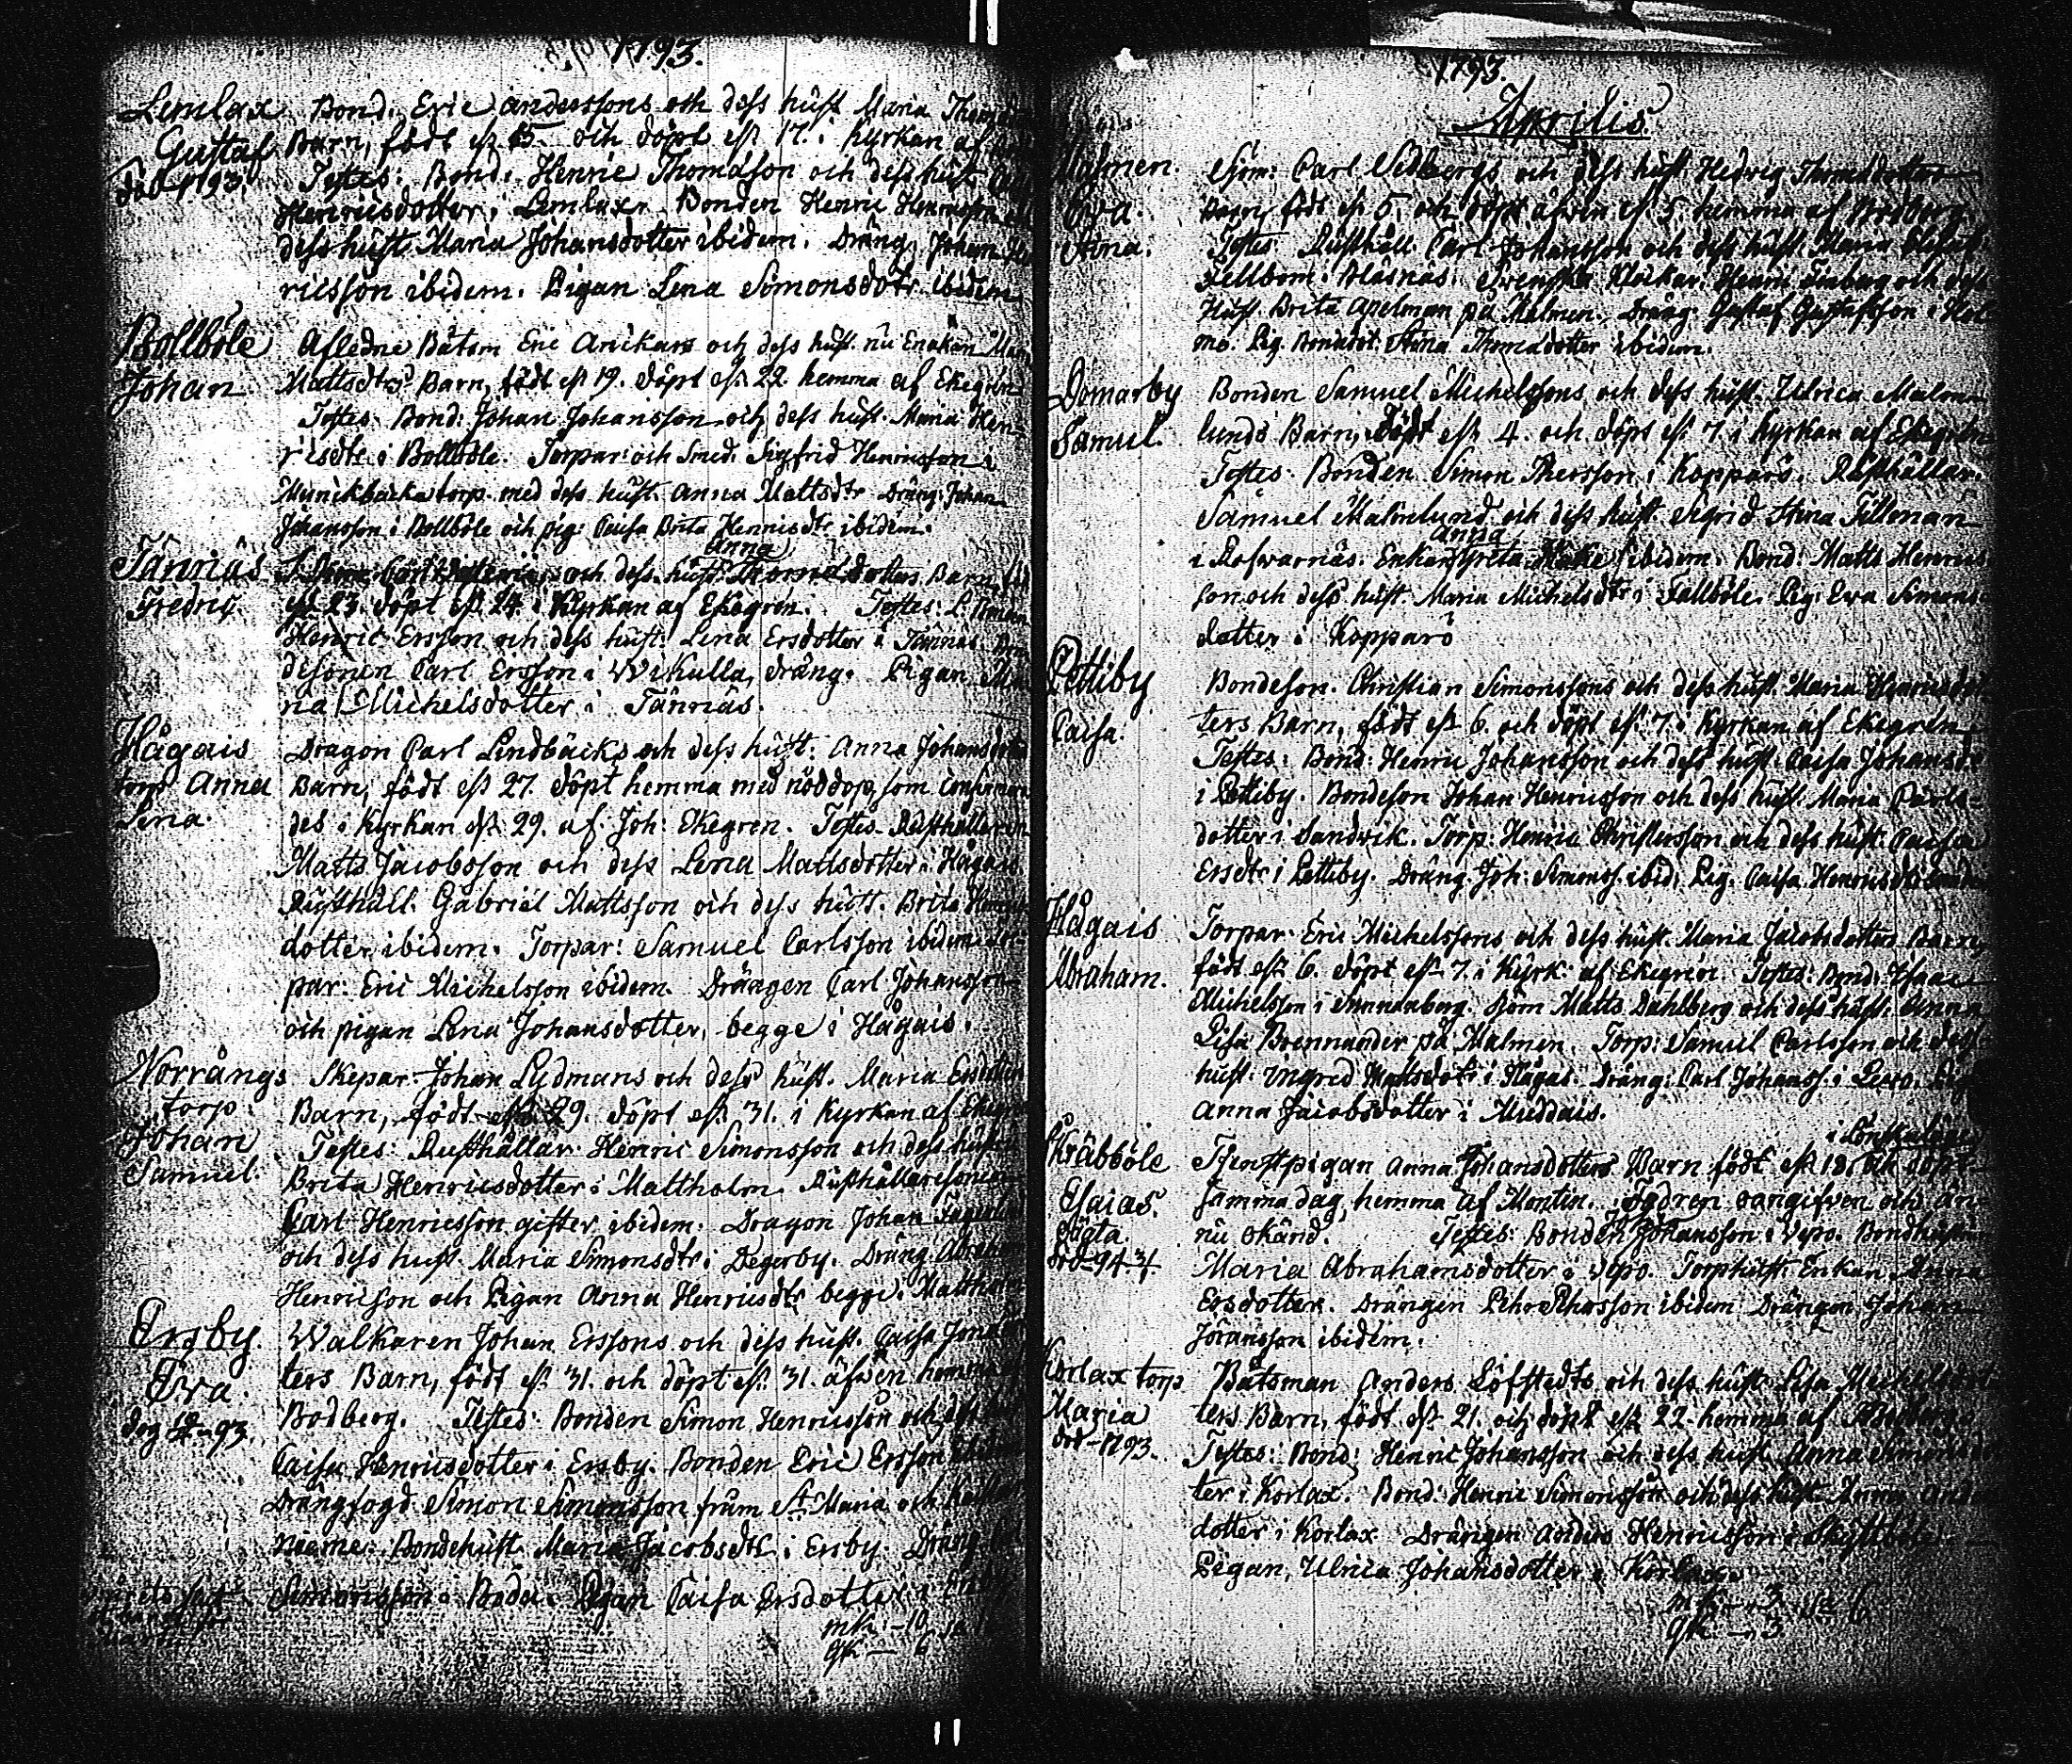 1793.
Lemlax Bond. Eric anderssons och dess hust Maria Thom
Gustaf Barn, född eß. 15. och döpt eß 17. i Kyrkan af
död 1793. Testes: Bond. Henric Thomasson och dess hust
Henricsdotter i Lemlax. Bonden Henric Henricsson
dess hust Maria Johansdotter ibidem. Dräng Johan
ricsson ibidem. Pigan Lena Simonsdotr ibidem
Bollböle Afledne Båtsm Eric Anckars och dess hust. nu Enckan
Johan Mattsdtrs Barn, född eß 19. döpt eß. 22. hemma af Ekegren
Testes. Bond: Johan Johansson och dess hust. Maria Hen-
ricsdtr i Bollböle. Torpar och Smed. Sigfrid Henricsson i
Munckbacka torp med dess hust. Anna Mattsdtr Dräng: Johan
Johansson i Bollböle och pig: Caisa Brita Henricsdtr ibidem.
Anna
Tännäs och dess hust. Thomasdotters Barn,
Fredric. eß 23. döpt eß. 24. i Kyrkan af Ekegren. Testes: L.
Henric Ersson och dess hust. Lena Ersdotter i Tännäs
desonen Carl Ersson i Wikulla, dräng. Pigan
ria Michelsdotter i Tännäs.
Hågais Dragon Carl Lindbäcks och dess hust. Anna Johans
torp Anna Barn, född eß 27. döpt hemma med nöddop, som confirmer
Lena. des i Kyrkan eß. 29. af Joh: Ekegren. Testes Rusthållaren
Matts Jacobsson och dess Lena Mattsdotter i Hågais
Rusthåll. Gabriel Mattsson och dess hust. Brita
dotter ibidem. Torpar: Samuel Carlsson ibidem
par: Eric Michelsson ibidem. Drängen Carl Johansson
och pigan Lena Johansdotter, begge i Hågais.
Norrångs Skepar. Johan Lydmans och dess hust. Maria
torp. Barn, född eß 29. döpt eß. 31. i Kyrkan af
Johan Testes: Rusthållar Henric Simonsson och dess hust
Samuel. Brita Henricsdotter i Mattholm. Rusthållaresonen
Carl Henricsson gifter ibidem. Dragon Johan
och dess hust. Maria Simonsdtr i Degerby. Dräng
Henricson och Pigan Anna Henricsdtr begge i
Ersby. Walkaren Johan Erssons och dess hust. Caisa
Eva. ters Barn, född eß. 31. och döpt eß 31. äfven
dog 93. Bodberg. Testes: Bonden Simon Henricsson och
Caisa Henricsdotter i Ersby. Bonden Eric Ersson
Drängfogd Simon Simonsson från St. Maria och
Bondehust. Maria Jacobsdtr i Ersby. Dräng
Simonsson i Boda. Pigan Caisa Ersdotter i
mk. – 10
qk – 6
1793.
Aprilis.
Malmen. Sjöm: Carl Sedbergs och dess hust. Hedvig Thomasdotters
Eva Barn, född eß 5, och döpt äfven eß 5. hemma af Bodberg
Stina. Testes: Rusthåll: Carl Johansson och dess hust. Maria
Fellbom i Bläsnäs. Svenska Klockar. Henric och dess
Hust. Brita Apelman på Malmen. Dräng Gustaf Gustafsson i
mo. Pig. Stina Thomasdotter ibidem.
Domarby Bonden Samuel Michelssons och dess hust. Ulrica Malm
Samuel lunds Barn, född eß. 4. och döpt eß 7. i Kyrkan af Ekegren
Testes. Bonden Simon Thersson i Kopparö. Rusthållar.
Samuel Malmlund och dess hust. Sigrid Stina Tillman
Anna
i Rofvarnäs. Enkan Greta ibidem. Bond: Matts Henrics
son och dess hust. Maria Michelsdtr i Fallböle. Pig: Eva Simons
dotter i Kopparö
Pettiby Bondeson. Christian Simonssons och dess hust. Maria Henricsdot
Caisa. ters Barn, född eß 6. och döpt eß 7. i Kyrkan af Ekegren
Testes: Bond. Henric Johansson och dess hust. Caisa Johansd:
i Pettiby. Bondeson Johan Henricsson och dess hust. Maria Carls-
dotter i Sandvik. Torp: Henric Christersson och dess hust. Caisa
Ersdtr i Pettiby. Dräng Joh: Simonss. ibid: Pig. Caisa Henricsdtr
Hågais Torpar. Eric Michelssons och dess hust. Maria Jacobsdotters Barn,
Abraham. född eß. 6. döpt eß 7. i Kyrk: af Ekegren. Testes: Bond: Isaac
Michelsson i Sunnanberg. Sjöm Matts Dahlberg och dess hust. Anna
Lisa Brennander på Malmen. Torp: Samuel Carlsson och dess
hust. Ingred Mattsdotr i Hågais. Dräng: Carl Johanss. i
Anna Jacobsdotter i Muddais.
Kräbböle Tjenstpigan Anna Johansdotters Barn född eß 18. och döpt
Esaias. samma dag, hemma af Montin. Fadren oangifven och än
Oägta. nu okänd. Testes: Bonden Johansson i Vepo. Bondhustrun
död 94. Maria Abrahamsdotter i Vepo. Torphust. Enkan Anna
Ersdotter. Drängen Pehr Pehrsson ibidem Drängen Johan
Joransson ibidem.
Korlax torp Båtsman Anders Löfstedts och dess hust. Lisa Michelsdot
Maria ters Barn, född eß. 21. och döpt eß 22. hemma af
död 1793. Testes: Bond: Henric Johansson och dess hust. Anna Simonsd
ter i Korlax. Bond: Henric Simonsson och dess hust. Anna
dotter i Korlax. Drängen Anders Henricsson i
Pigan, Ulrica Johansdotter i Korlax.
mk. – 3
qk – 3 6